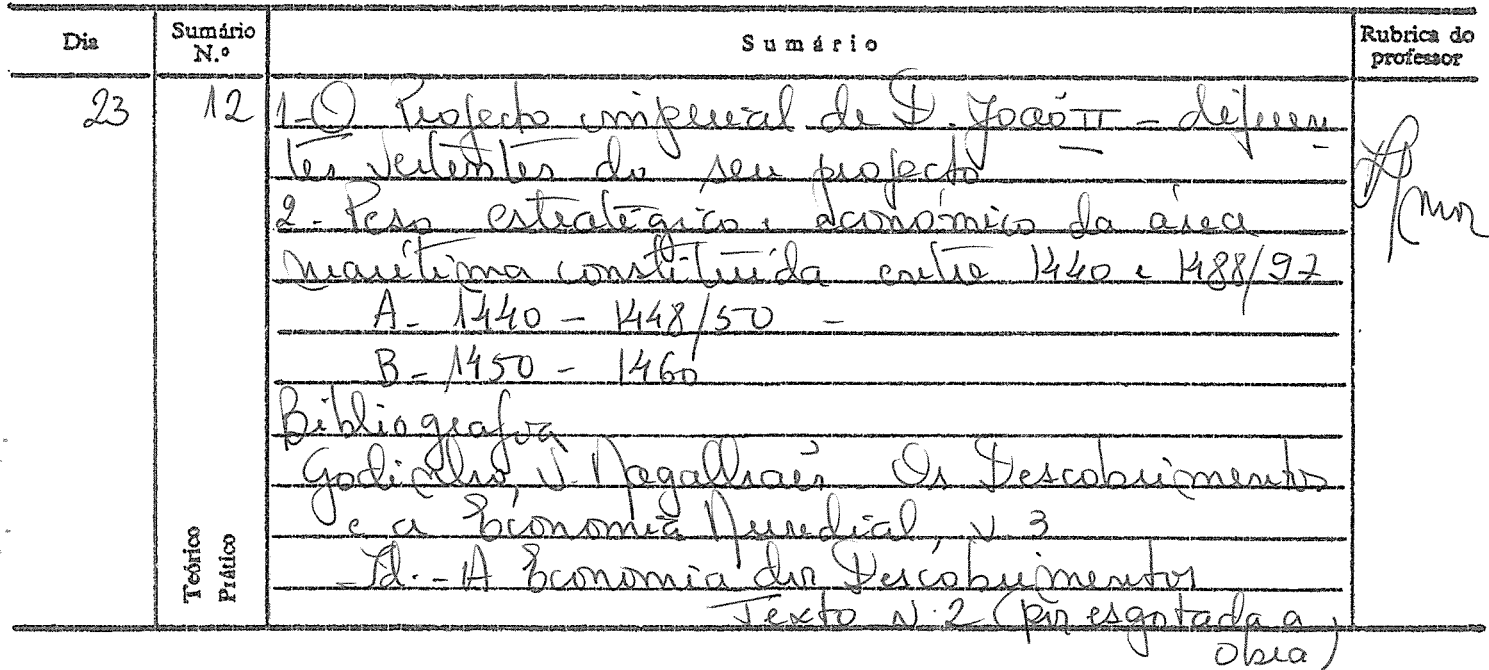 Dia Sumário N.º Sumário Rubrica do professor
23 12 1-O Projecto imperial de D. João II - diferen
tes vertentes do seu projecto
2- Peso estratégico e económico da área
marítima constituída entre 1440 e 1488/97
A- 1440 - 1448/50 -
B- 1450 - 1460
Bibliografia
Godinho, V. Magalhães Os Descobrimentos
e a Economia Mundial, v. 3
- Id. - A Economia dos Descobrimentos
Texto N. 2 (por esgotada a
obra)
Teórico
Prático